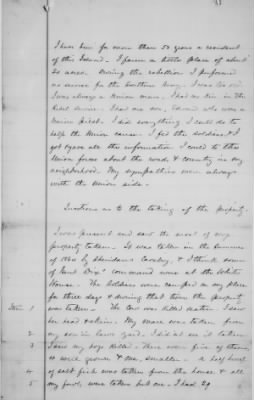 I have been for more than 50 years a resident
of this Island. I own a little place of about
20 acres. During the rebellion I performed
no service for the Southern Army. I was too old.
I was always a Union man. I had no kin in the
Rebel service. I had one son, Edmund who was a
Union pilot. I did everything I could do to
help the Union cause. I fed the soldiers & I
gave all the information I could to the
Union forces about the roads & country in my
neighborhood. My sympathies were always
with the Union side.
Questions as to the taking of the property.
I was present and saw the most of my
property taken. It was taken in the summer
of 1864 by Sheridan's Cavalry, & I think some
of Genl command were at the White
House. The soldiers were camped on my place
for three days & during that time the property
was taken. The cow was killed . I saw
her head & skin. My mare was taken from
my son in law's yard. I did not see it taken.
I saw my hogs killed. There were five of them,
well grown & smaller. A half barrel
of salt fish was taken from the house & all
my fowls were taken but one. I had 29
Item 1
2
3
4
5